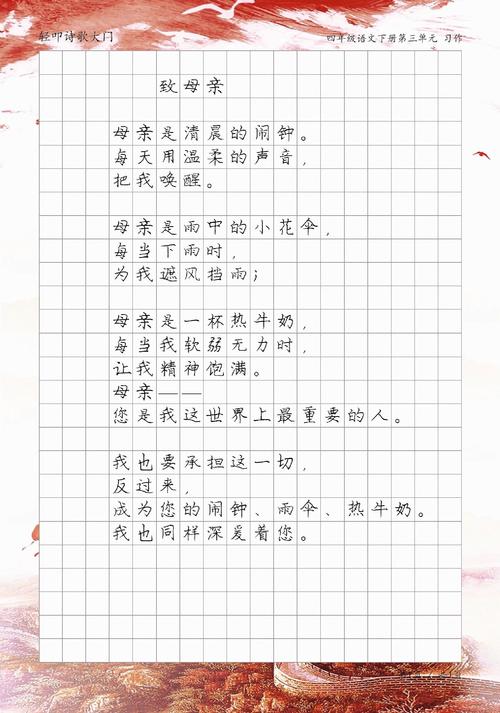 轻叩诗歌大门
四年级语文下册第三单元 习作
致母亲
母亲是清晨的闹钟。
每天用温柔的声音,
把我唤醒。
母亲是雨中的小花伞,
每当下雨时,
为我遮风挡雨;
母亲是一杯热牛奶,
每当我软弱无力时,
让我精神饱满。
母亲——
您是我这世界上最重要的人。
我也要承担这一切,
反过来,
成为您的闹钟、雨伞、热牛奶。
我也同样深爱着您。